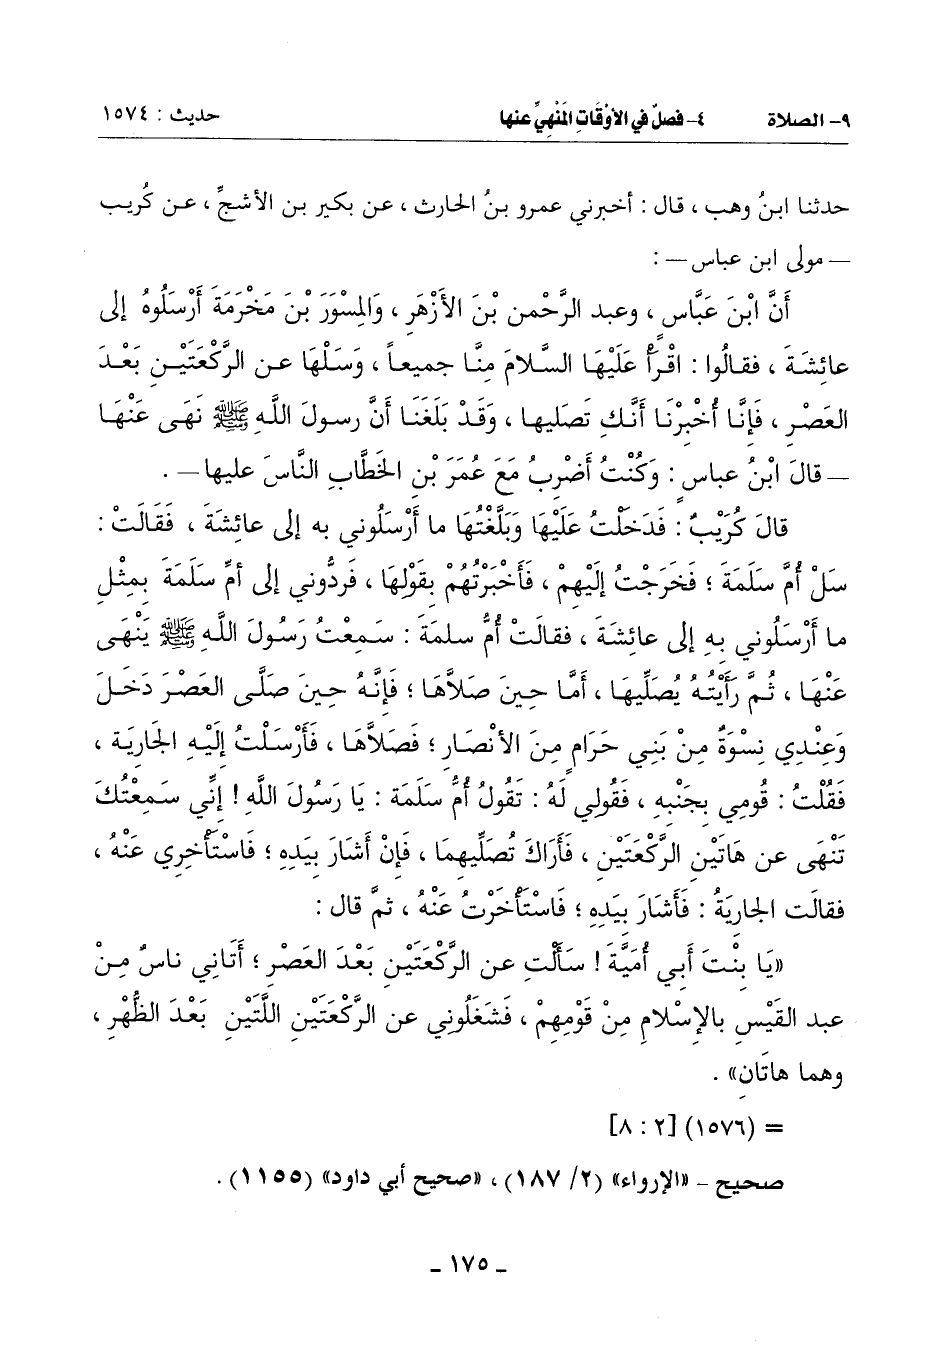 ٩- الصلاة ٤- فصلٌ في الأوْقَاتِ المَنْهِيِّ عنها حديث : ١٥٧٤
حدثنا ابنُ وهب ، قال : أخبرني عمرو بنُ الحارث ، عن بكير بن الأشجِّ ، عن كُريب
— مولى ابن عباس — :
أَنَّ ابْنَ عَبَّاسٍ ، وعبد الرَّحْمن بْنَ الأَزْهَرِ ، وَالمِسْوَرَ بْنَ مَخْرَمَةَ أَرْسَلُوهُ إلى
عائشَةَ ، فقالُوا : اقْرَأْ عَلَيْهَا السَّلامَ مِنَّا جميعاً ، وَسَلْهَا عن الرَّكْعَتَيْنِ بَعْدَ
العَصْرِ ، فَإِنَّا أُخْبِرْنَا أَنَّكِ تصَليها ، وَقَدْ بَلَغَنَا أَنَّ رسولَ اللَّهِ ﷺ نَهَى عَنْهَا
— قالَ ابْنُ عباسٍ : وَكُنْتُ أَضْرِبُ مَعَ عُمَرَ بْنِ الخَطَّابِ النَّاسَ عليها — .
قالَ كُرَيْبٌ : فَدَخَلْتُ عَلَيْهَا وَبَلَّغْتُهَا ما أَرْسَلُوني به إلى عائشَةَ ، فَقَالَتْ :
سَلْ أُمَّ سَلَمَةَ ؛ فَخَرَجْتُ إِلَيْهِمْ ، فَأَخْبَرْتُهُمْ بِقَوْلِها ، فَردُّوني إلى أمِّ سَلَمَةَ بِمِثْلِ
ما أَرْسَلُوني بهِ إلى عائِشَةَ ، فقالَتْ أُمُّ سلمةَ : سَمِعْتُ رَسُولَ اللَّهِ ﷺ يَنْهَى
عَنْهَا ، ثُمَّ رَأَيْتُهُ يُصَلِّيهَا ، أَمَّا حِينَ صَلاَّهَا ؛ فَإِنَّهُ حِينَ صَلَّى العَصْرَ دَخَلَ
وَعِنْدِي نِسْوَةٌ مِنْ بَنِي حَرَامٍ مِنَ الأَنْصَارِ ؛ فَصَلاَّهَا ، فَأَرْسَلْتُ إِلَيْهِ الجَارِيَةَ ،
فَقُلْتُ : قُومِي بِجَنْبِهِ ، فَقُولي لَهُ : تَقُولُ أُمُّ سَلَمَةَ : يَا رَسُولَ اللَّهِ ! إِنِّي سَمِعْتُكَ
تَنْهَى عن هَاتَيْنِ الرَّكْعَتَيْنِ ، فَأَرَاكَ تُصَلِّيهِمَا ، فَإِنْ أَشَارَ بِيَدِهِ ؛ فَاسْتَأْخِري عَنْهُ ،
فقالَت الجارِيَةُ : فَأَشَارَ بيَدِهِ ؛ فَاسْتَأْخَرْتُ عَنْهُ ، ثمَّ قال :
«يَا بِنْتَ أَبي أُمَيَّةَ ! سَأَلْتِ عن الرَّكْعَتَيْنِ بَعْدَ العَصْرِ ؛ أَتَانِي ناسٌ مِنْ
عبد القَيْسِ بالإِسْلامِ مِنْ قَوْمِهِمْ ، فَشَغَلُوني عن الرَّكْعَتَيْنِ اللَّتَيْنِ بَعْدَ الظُّهْرِ ،
وهما هاتَانِ» .
= (١٥٧٦) [٢ : ٨]
صحيح - «الإرواء» (٢/ ١٨٧) ، «صحيح أبي داود» (١١٥٥) .
- ١٧٥ -